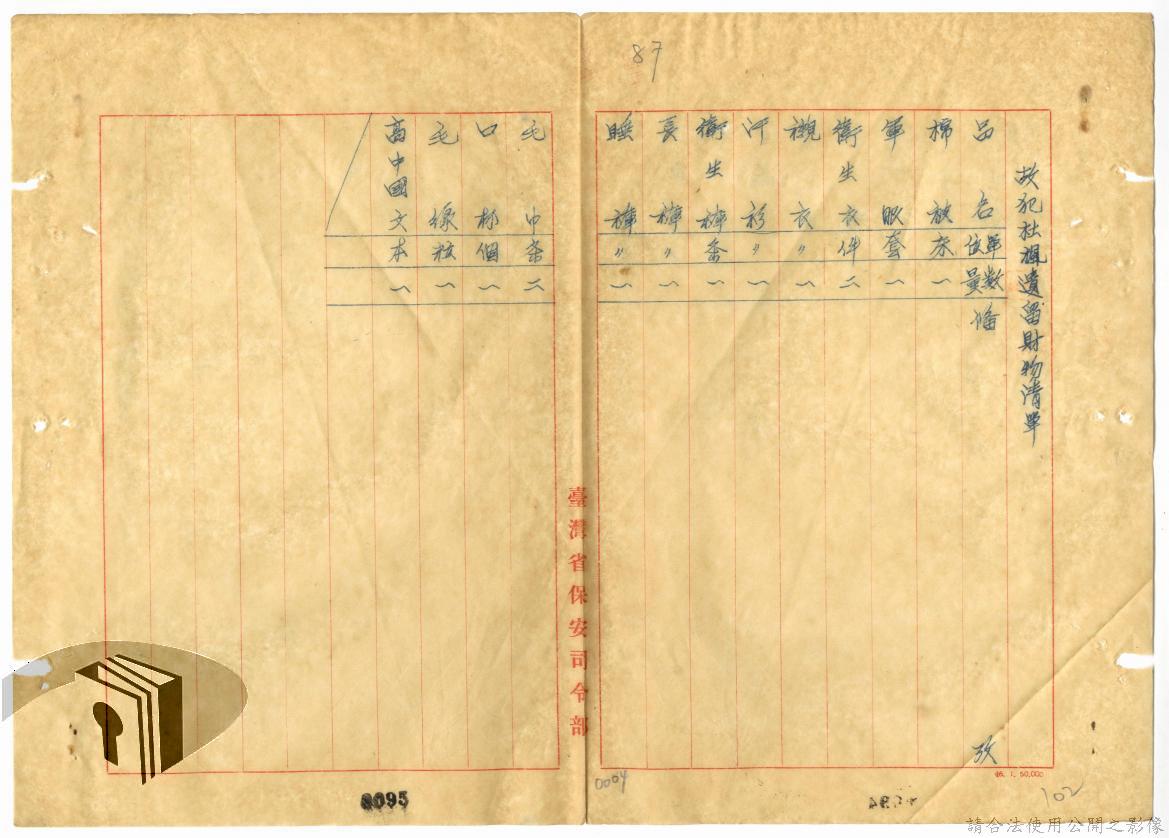 87
故犯杜 遺留財物清單
品名 單位 數量 備 攷
棉被 床 一
軍服 套 一
衛生衣 件 二
襯衣 〃 一
汗衫 〃 一
衛生褲 条 一
長褲 〃 一
睡褲 〃 一
毛巾 条 二
口杯 個 一
毛線 一
高中國文 本 一
臺灣省保安司令部
46. 1. 50,000
0004
102
0095
請合法使用公開之影像